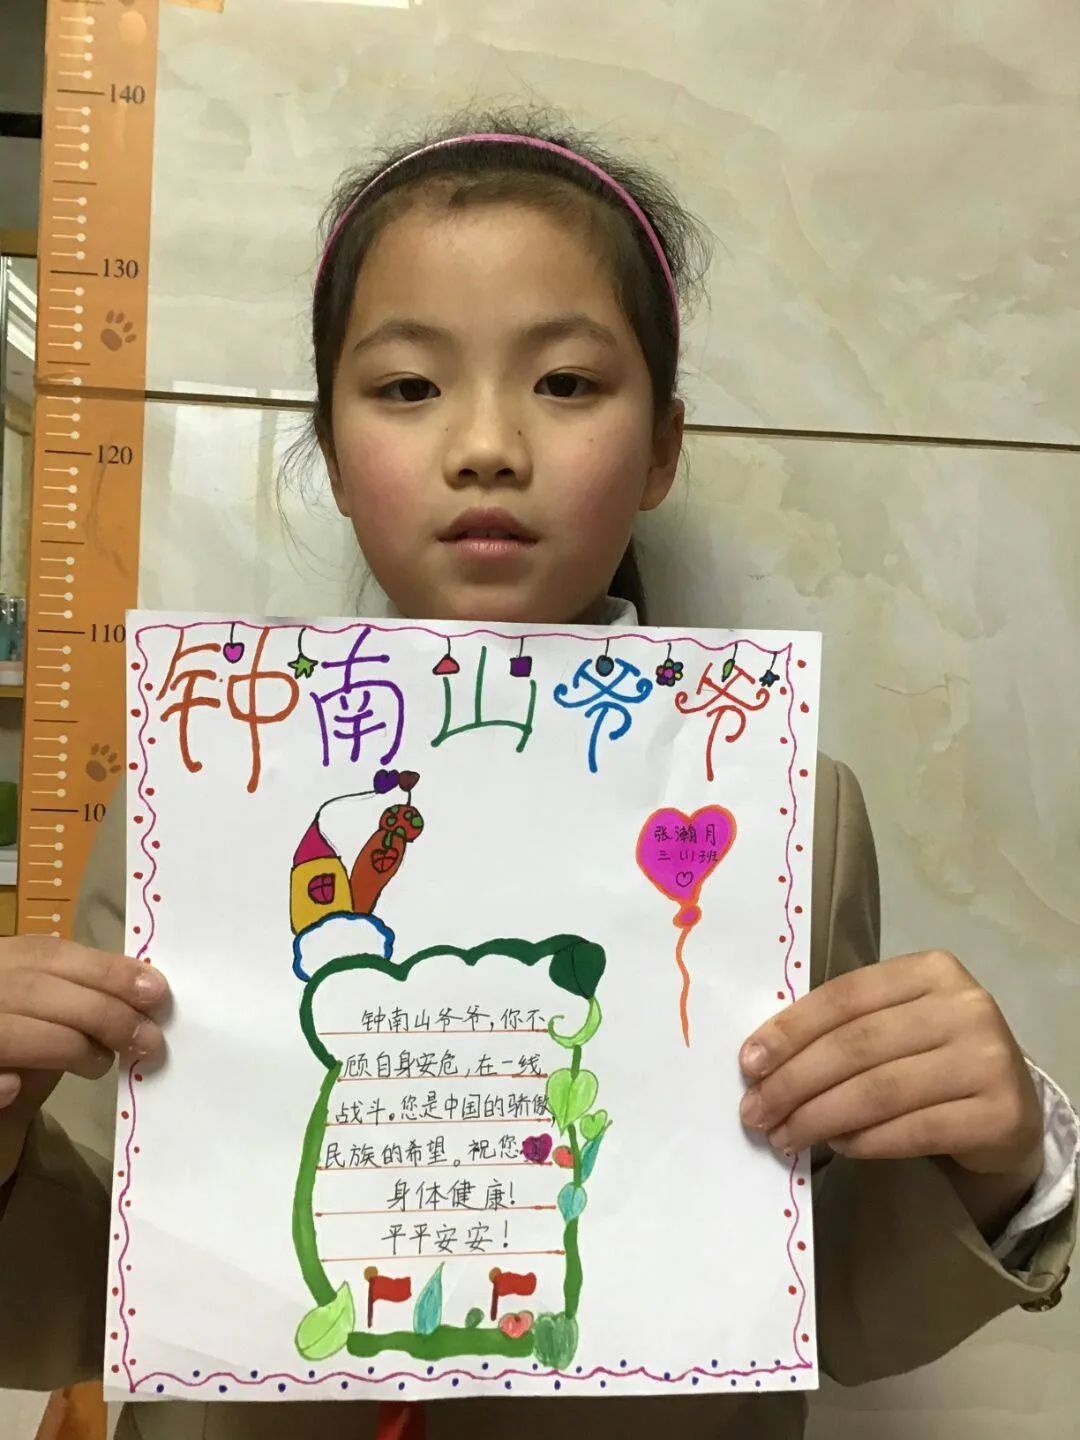 140
130
120
110
10
钟南山爷爷
张瀚月
三(1)班
钟南山爷爷,你不
顾自身安危,在一线
战斗。您是中国的骄傲,
民族的希望。祝您
身体健康!
平平安安!